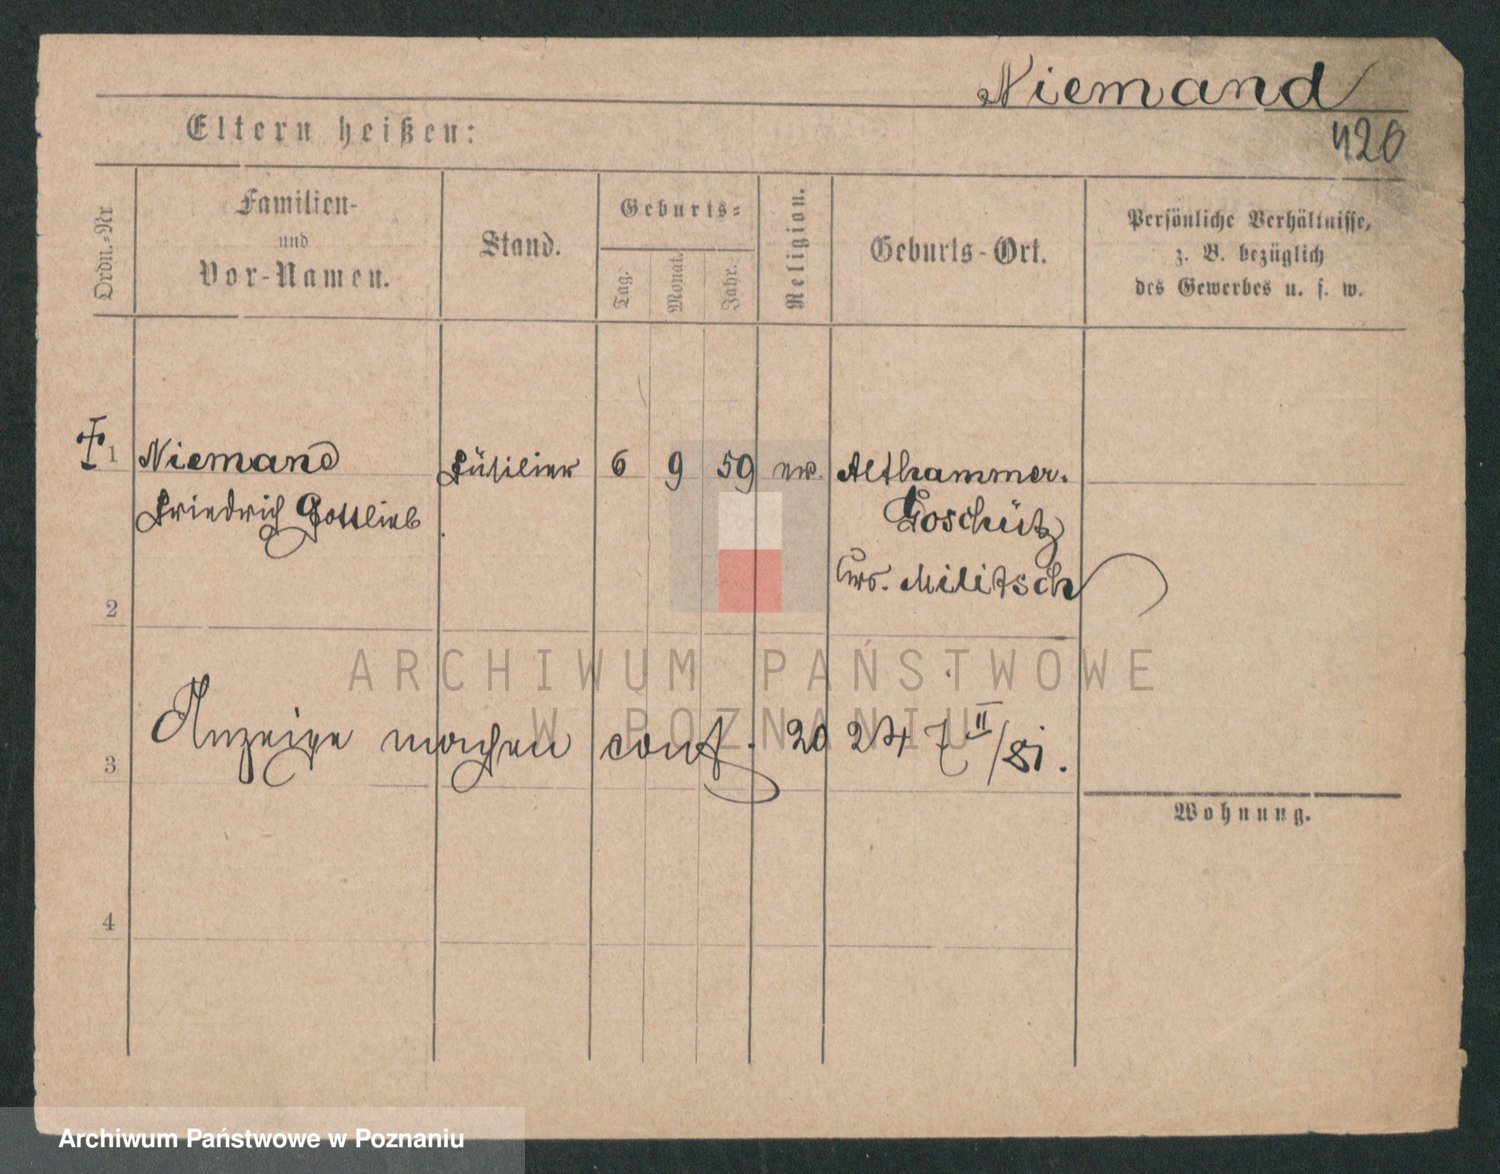 Niemand
420
Eltern heißen:
Ordn.=Nr
Familien-
und
Vor-Namen.
Stand.
Geburts=
Tag.
Monat.
Jahr.
Religion.
Geburts-Ort.
Persönliche Verhältnisse,
z. B. bezüglich
des Gewerbes u. s. w.
1 Niemand Füsilier 6 9 59 ev. Althammer.
Friedrich Gottlieb Goschütz
Militsch
2
ARCHIWUM PAŃSTWOWE
W POZNANIU
Anzeige machen conf. 20 24 7 II/81.
3
Wohnung.
4
Archiwum Państwowe w Poznaniu